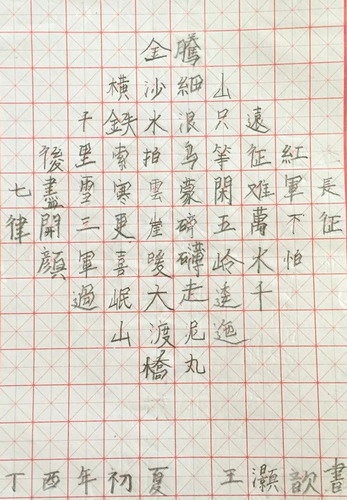 長征
紅軍不怕
遠征难萬水千
山只等閑五岭逶迤
騰細浪乌蒙磅礴走泥丸
金沙水拍雲崖暖大渡橋
橫鉄索寒更喜岷山
千里雪三軍過
後盡開顔
七律
丁酉年初夏 王灝歆書